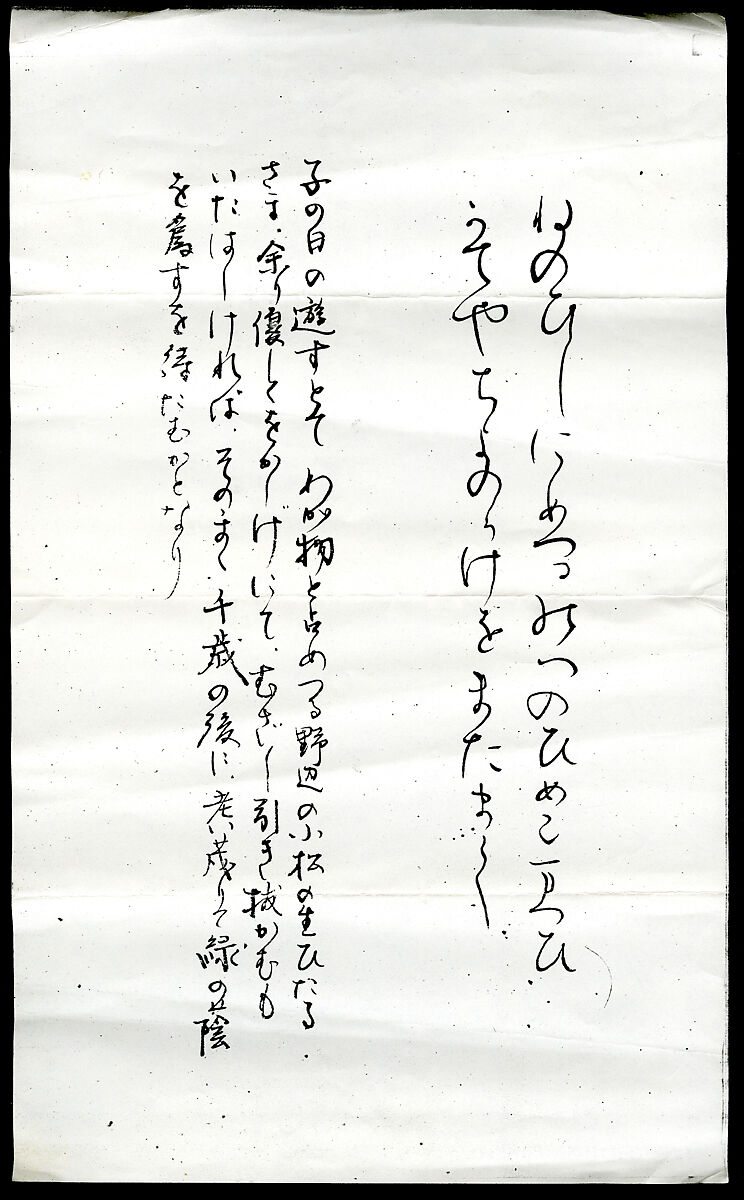 ねのひしにめつるのへのひめこまつひ
かてやちよのかけをまたまし
子の日の遊すとてわが物と占めつる野辺の小松の生ひたる
さま、余り優しくをかしげにて、むざ〳〵引き抜かむも
いたはしければ、そのまゝ、千歳の後に、老い茂りて緑の蔭
を為すを待たむかとなり